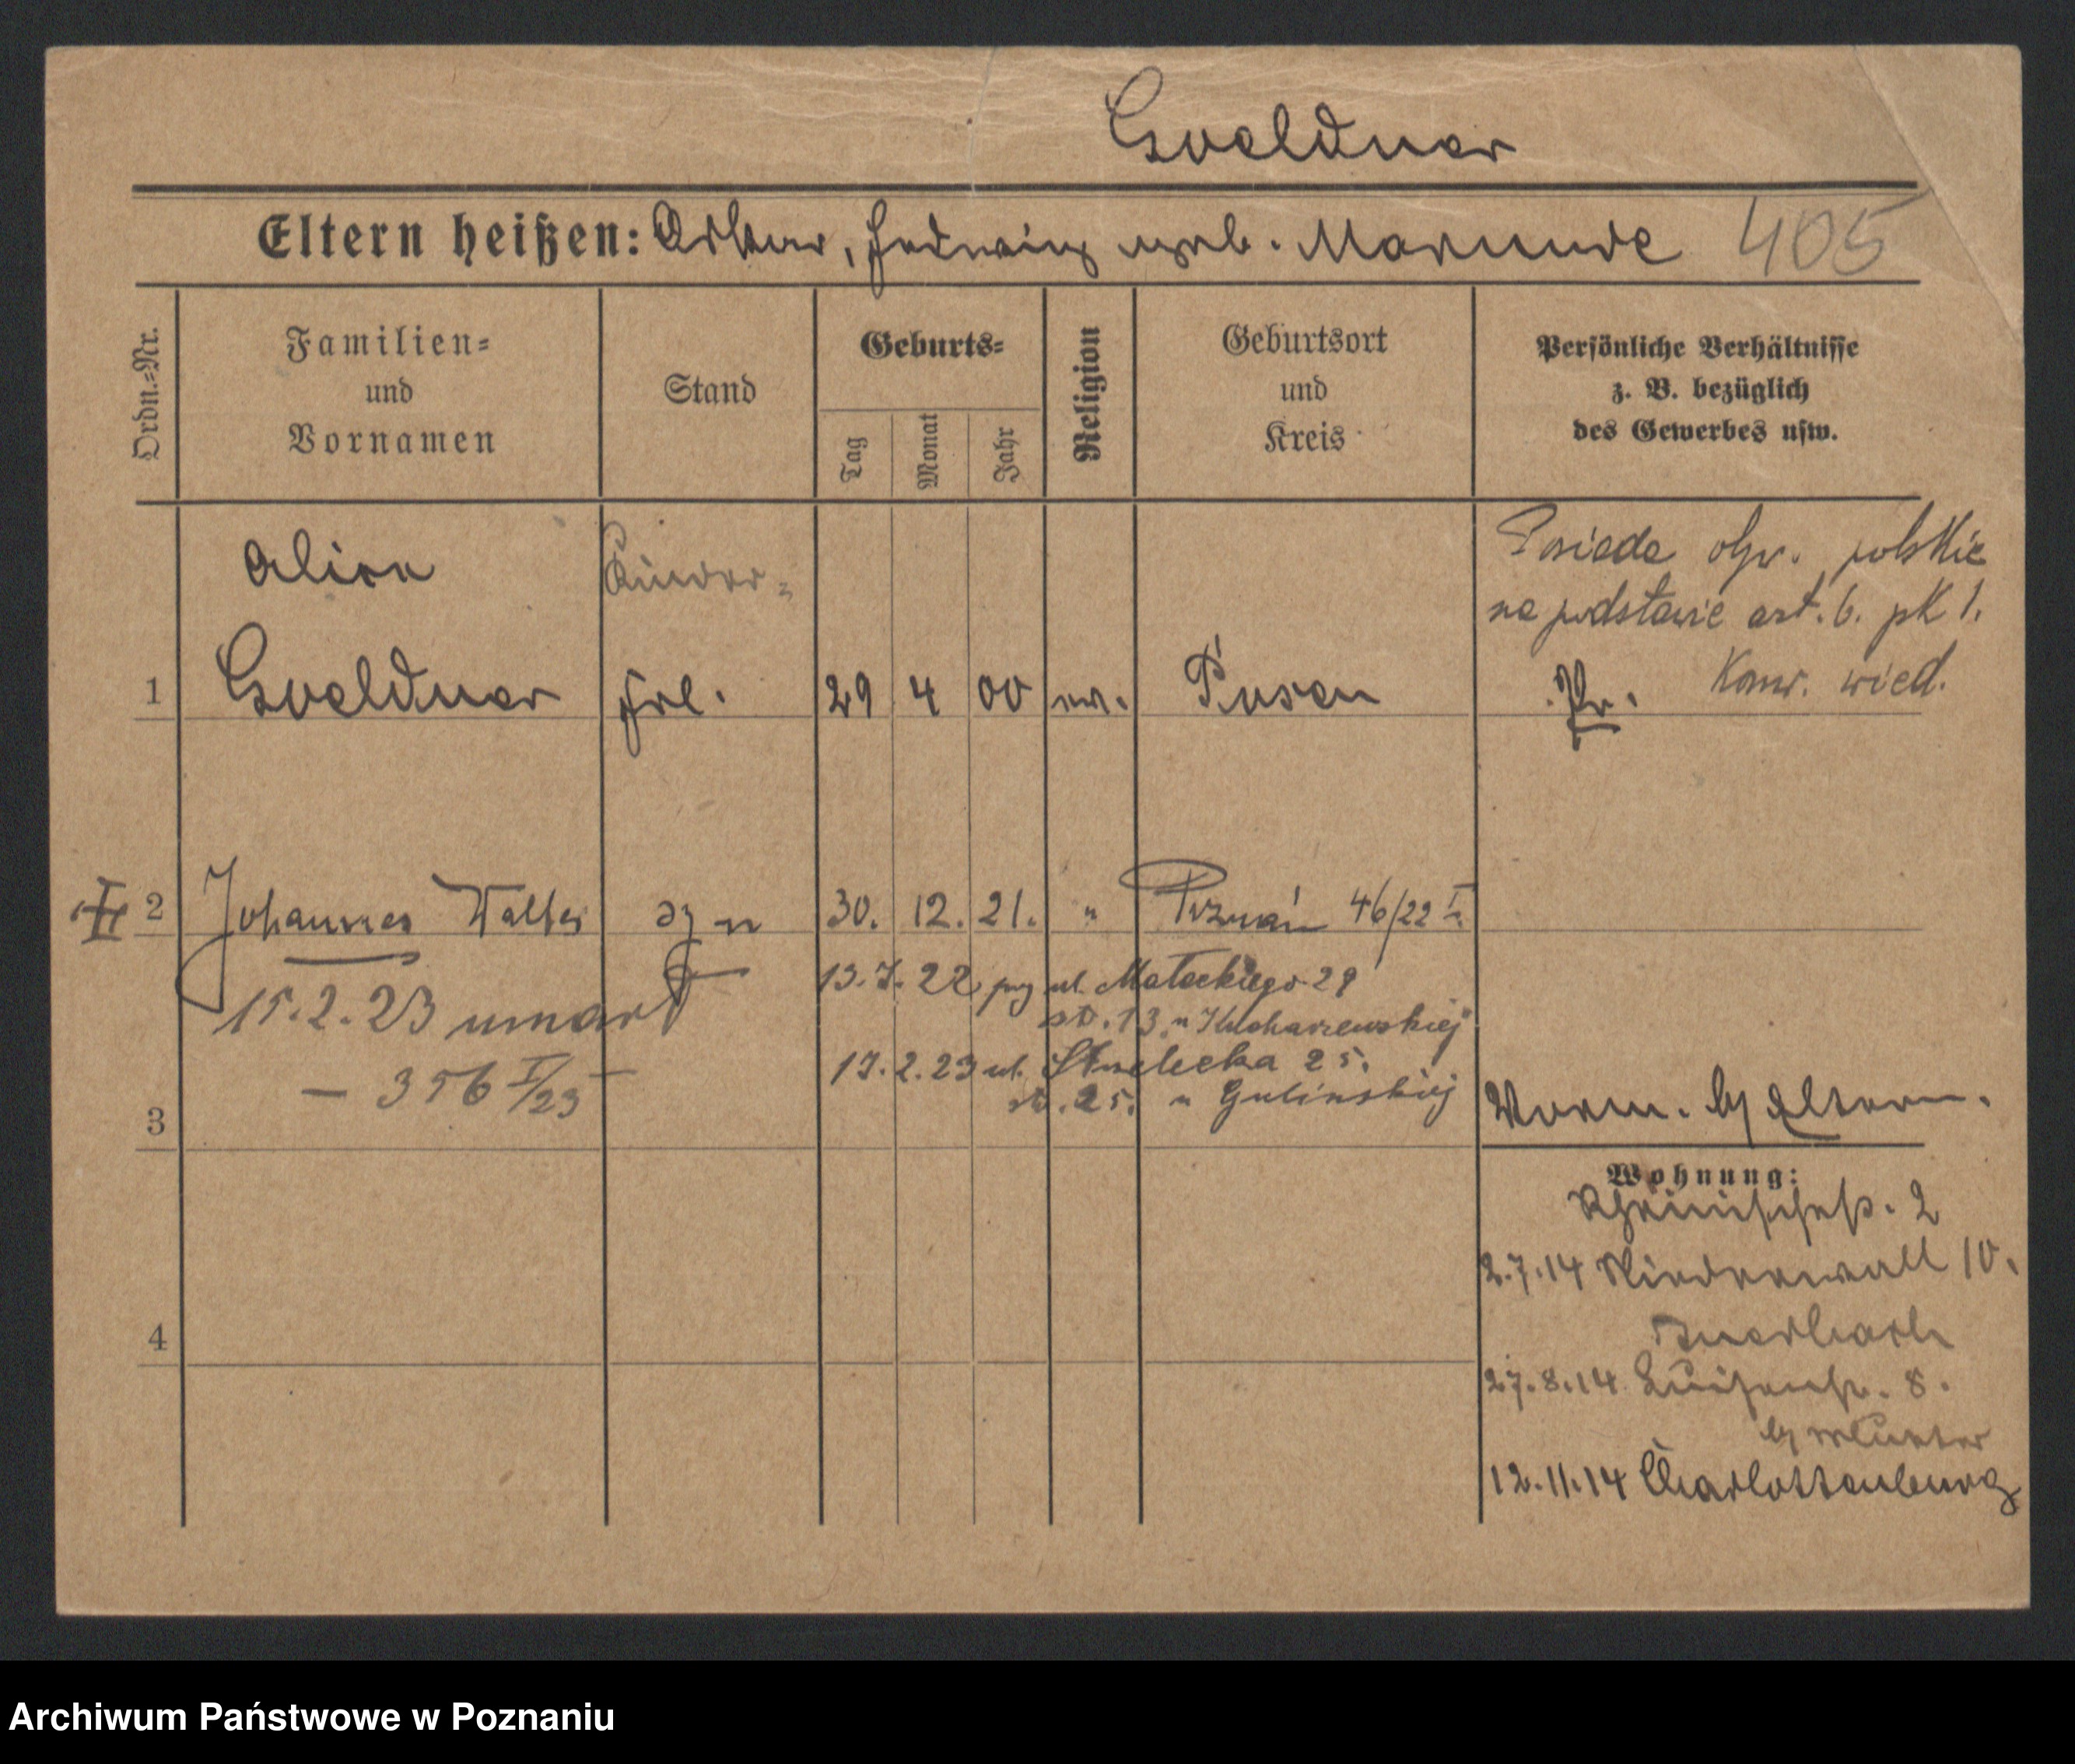 Goeldner
Eltern heißen: Arthur, Hedwig geb. Marunde 405
Ordn.-Nr.
Familien-
und
Vornamen
Stand
Geburts-
Tag
Monat
Jahr
Religion
Geburtsort
und
Kreis
Persönliche Verhältnisse
z. B. bezüglich
des Gewerbes usw.
Posiada obyw. polskie
na podstawie art. 6. pk 1.
Konw. wied.
Alice Kinder-
1 Goeldner frl. 29 4 00 ev. Posen Pr.
2 Johannes Walter syn 30. 12. 21. " Poznań 46/22 I.
13.7.22 przy ul. Małeckiego 29
15.2.23 umarł
st. 13. u Kucharzewskiej
17.2.23 ul. Strzelecka 25.
– 356 I/23 –
st. 25. u Gulinskiej
3
Vorm. b/ Eltern.
Wohnung:
Rheinischestr. 2
2.7.14 Niederwall 10.
4
27.8.14 Luisenstr. 8.
b/ Mutter
12.11.14 Charlottenburg
Archiwum Państwowe w Poznaniu